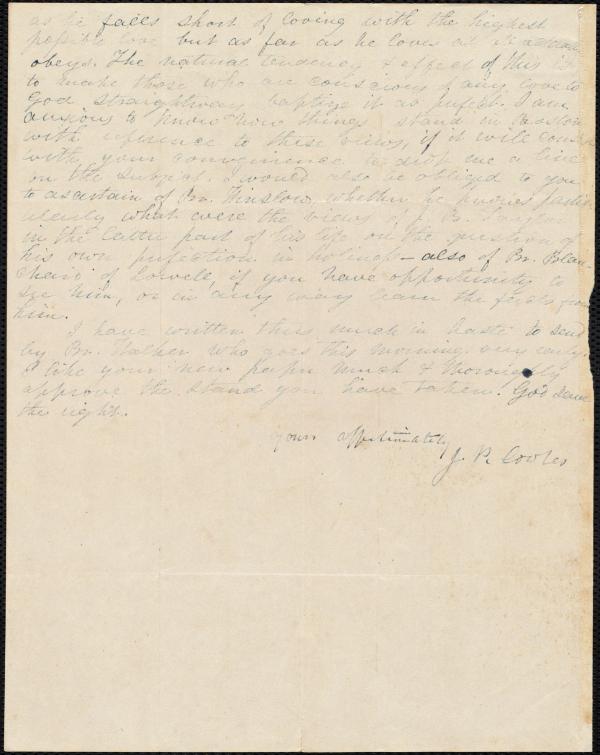 as he falls short of loving with the highest
possible love but as far as he loves at all
obeys. The natural tendency & effect of this is
to make those who are conscious of any love to
God straightway baptize it as perfect. I am
anxious to know how things stand in Boston
with reference to these views, if it will consist
with your convenience to drop me a line
on the subject. I would also be obliged to you
to ascertain of Br. Winslow, whether he knows partic-
ularly what were the views of J. B. Taylor
in the latter part of his life on the question of
his own perfection in holiness – also of Br. Blan-
chard of Lowell, if you have opportunity to
see him, or in any way learn the facts from
him.
I have written thus much in haste to send
by Br. Walker who goes this morning very early.
I like your new paper much & thoroughly
approve the stand you have taken. God save
the right.
yours affectionately
J. P. Cowles